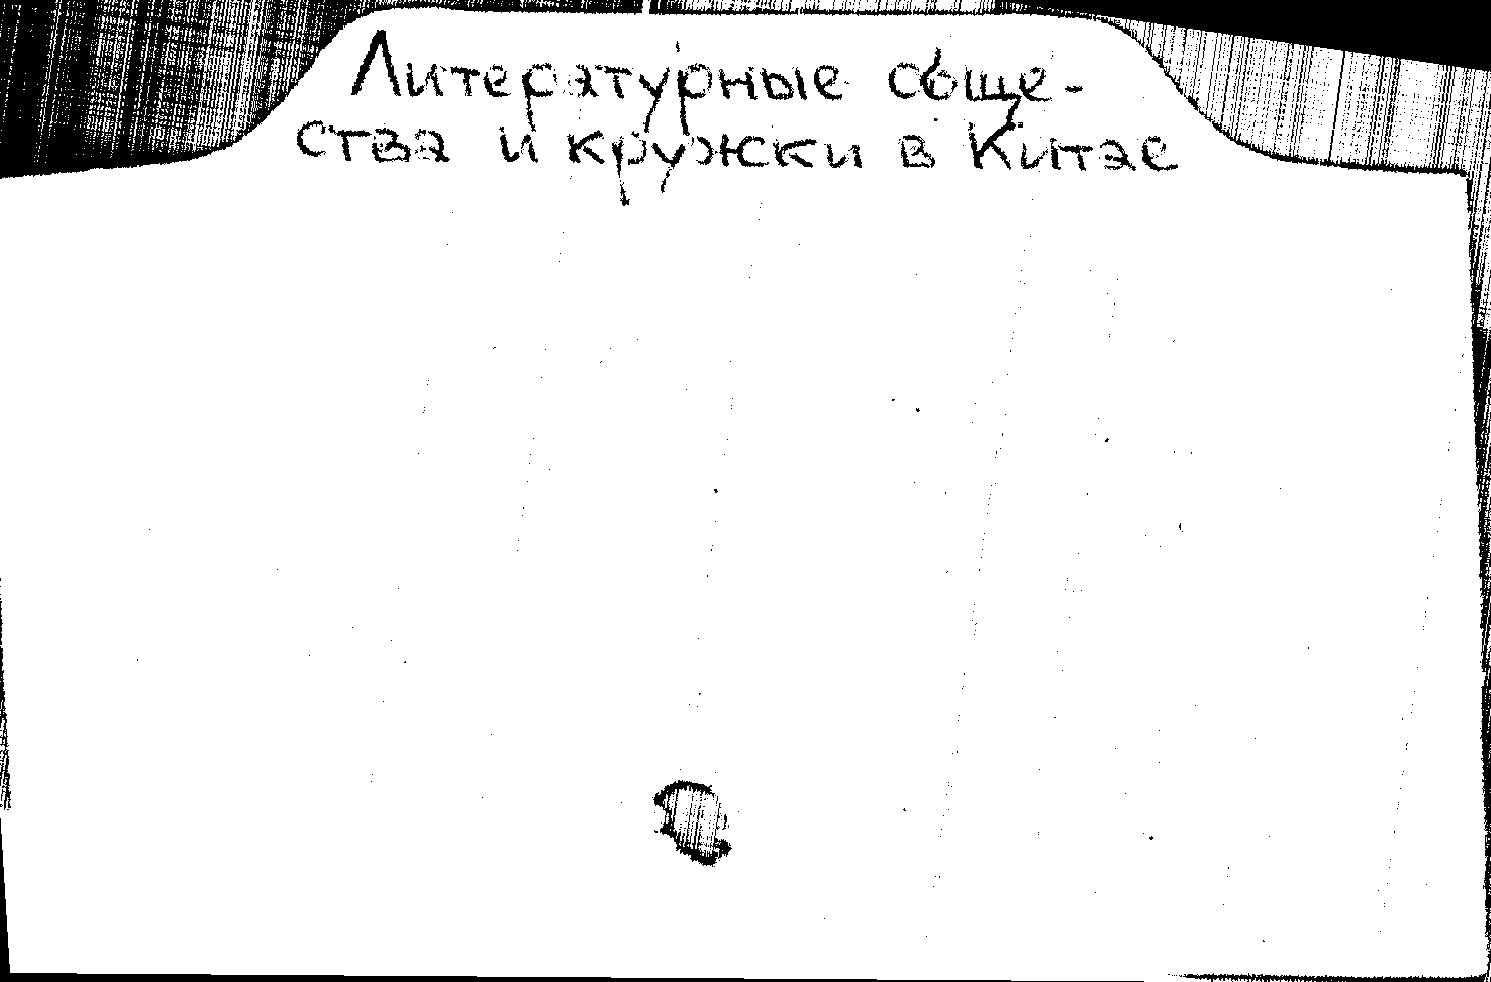 Литературные обще-
ства и кружки в Китае